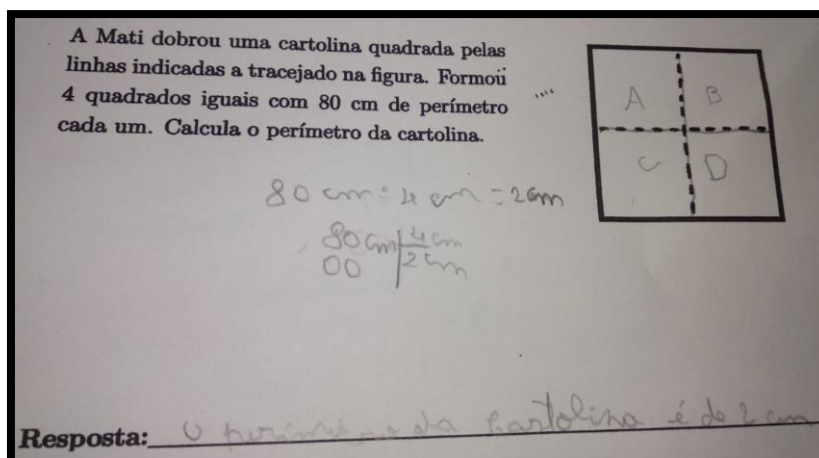 A Mati dobrou uma cartolina quadrada pelas
linhas indicadas a tracejado na figura. Formou
4 quadrados iguais com 80 cm de perímetro
cada um. Calcula o perímetro da cartolina.
A B
C D
80 cm ÷ 4 cm = 2 cm
80 cm 4 cm
00 2 cm
Resposta: O perímetro da cartolina é de 2 cm